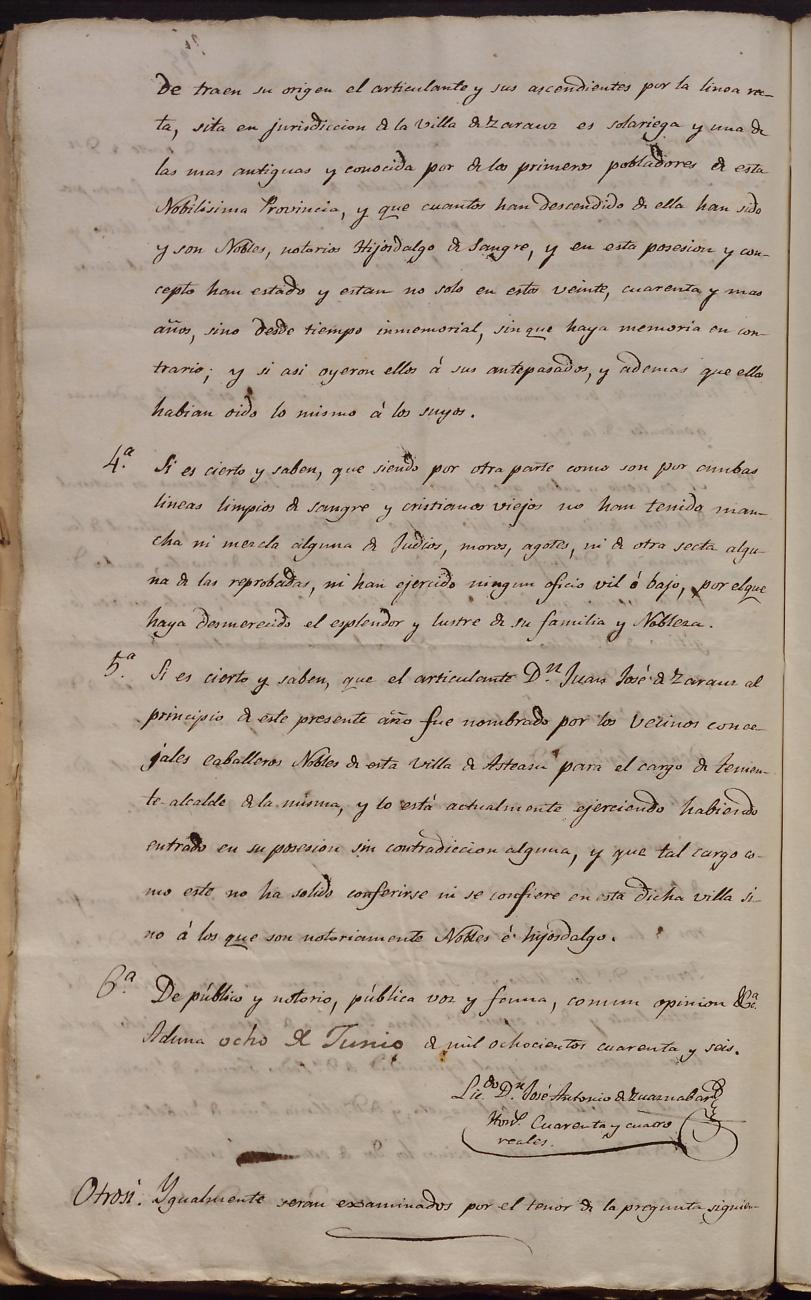 de traen su origen el articulante y sus ascendientes por la linea rec-
ta, sita en jurisdiccion de la villa de Zarauz es solariega y una de
las mas antiguas y conocida por de los primeros pobladores de esta
Nobilisima Provincia, y que cuantos han descendido de ella han sido
y son Nobles, notorios Hijosdalgo de sangre, y en esta posesion y con-
cepto han estado y estan no solo en estos veinte, cuarenta y mas
años, sino desde tiempo inmemorial, sin que haya memoria en con-
trario; y si asi oyeron ellos á sus antepasados, y ademas que ellos
habian oido lo mismo á los suyos.
4.ª Si es cierto y saben, que siendo por otra parte como son por ambas
lineas limpios de sangre y cristianos viejos no han tenido man-
cha ni mezcla alguna de Judios, moros, agotes, ni de otra secta algu-
na de las reprobadas, ni han ejercido ningun oficio vil ó bajo, por el que
haya desmerecido el esplendor y lustre de su familia y Nobleza.
5.ª Si es cierto y saben, que el articulante D.n Juan José de Zarauz al
principio de este presente año fue nombrado por los vecinos conce-
jales caballeros Nobles de esta villa de Asteasu para el cargo de tenien-
te alcalde de la misma, y lo está actualmente ejerciendo habiendo
entrado en su posesion sin contradiccion alguna, y que tal cargo co-
mo este no ha solido conferirse ni se confiere en esta dicha villa si-
no á los que son notoriamente Nobles é hijosdalgo.
6.ª De público y notorio, pública voz y fama, comun opinion &c.ª
Aduna ocho de Junio de mil ochocientos cuarenta y seis.
Lic.do D.n José Antonio de Zuaznabar
Hon.s Cuarenta y cuatro
reales.
Otrosi. Ygualmente seran examinados por el tenor de la pregunta siguien-